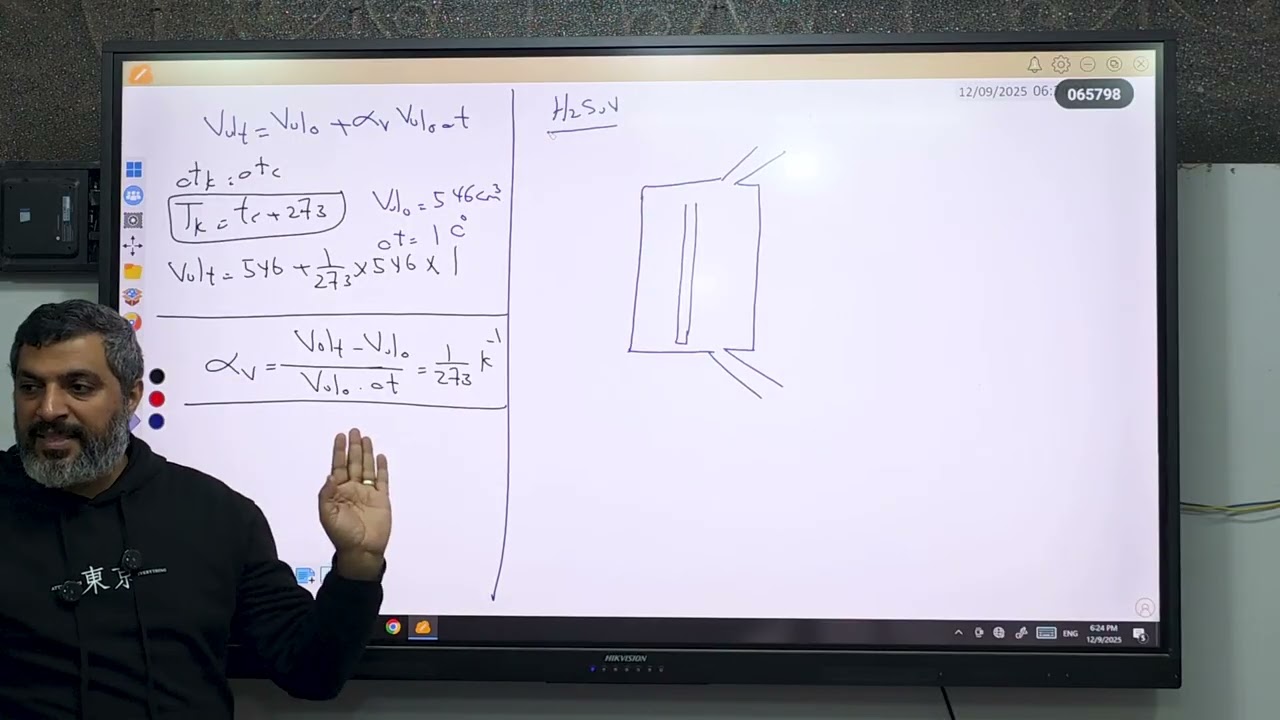 12/09/2025 06:
065798
Vol t = Vol o + αv Vol o Δt
Δtk = Δtc
Tk = tc + 273
Vol o = 546 cm³
Δt = 1 C°
Vol t = 546 + 1/273 × 546 × 1
αv = Vol t - Vol o / Vol o . Δt = 1/273 k⁻¹
東京
HIKVISION
ENG
6:24 PM
12/9/2025